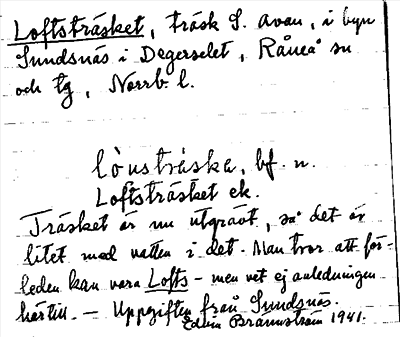 Loftsträsket, träsk S. Avan, i byn
Sundsnäs i Degerselet, Råneå sn
och tg, Norrb. l.
lònsträska, bf. n.
Loftsträsket ek.
Träsket är nu utgrävt, så det är
litet med vatten i det. Man tror att för-
leden kan vara Lofts- men vet ej anledningen
härtill. — Uppgiften från Sundsnäs.
Edvin Brännström 1941.